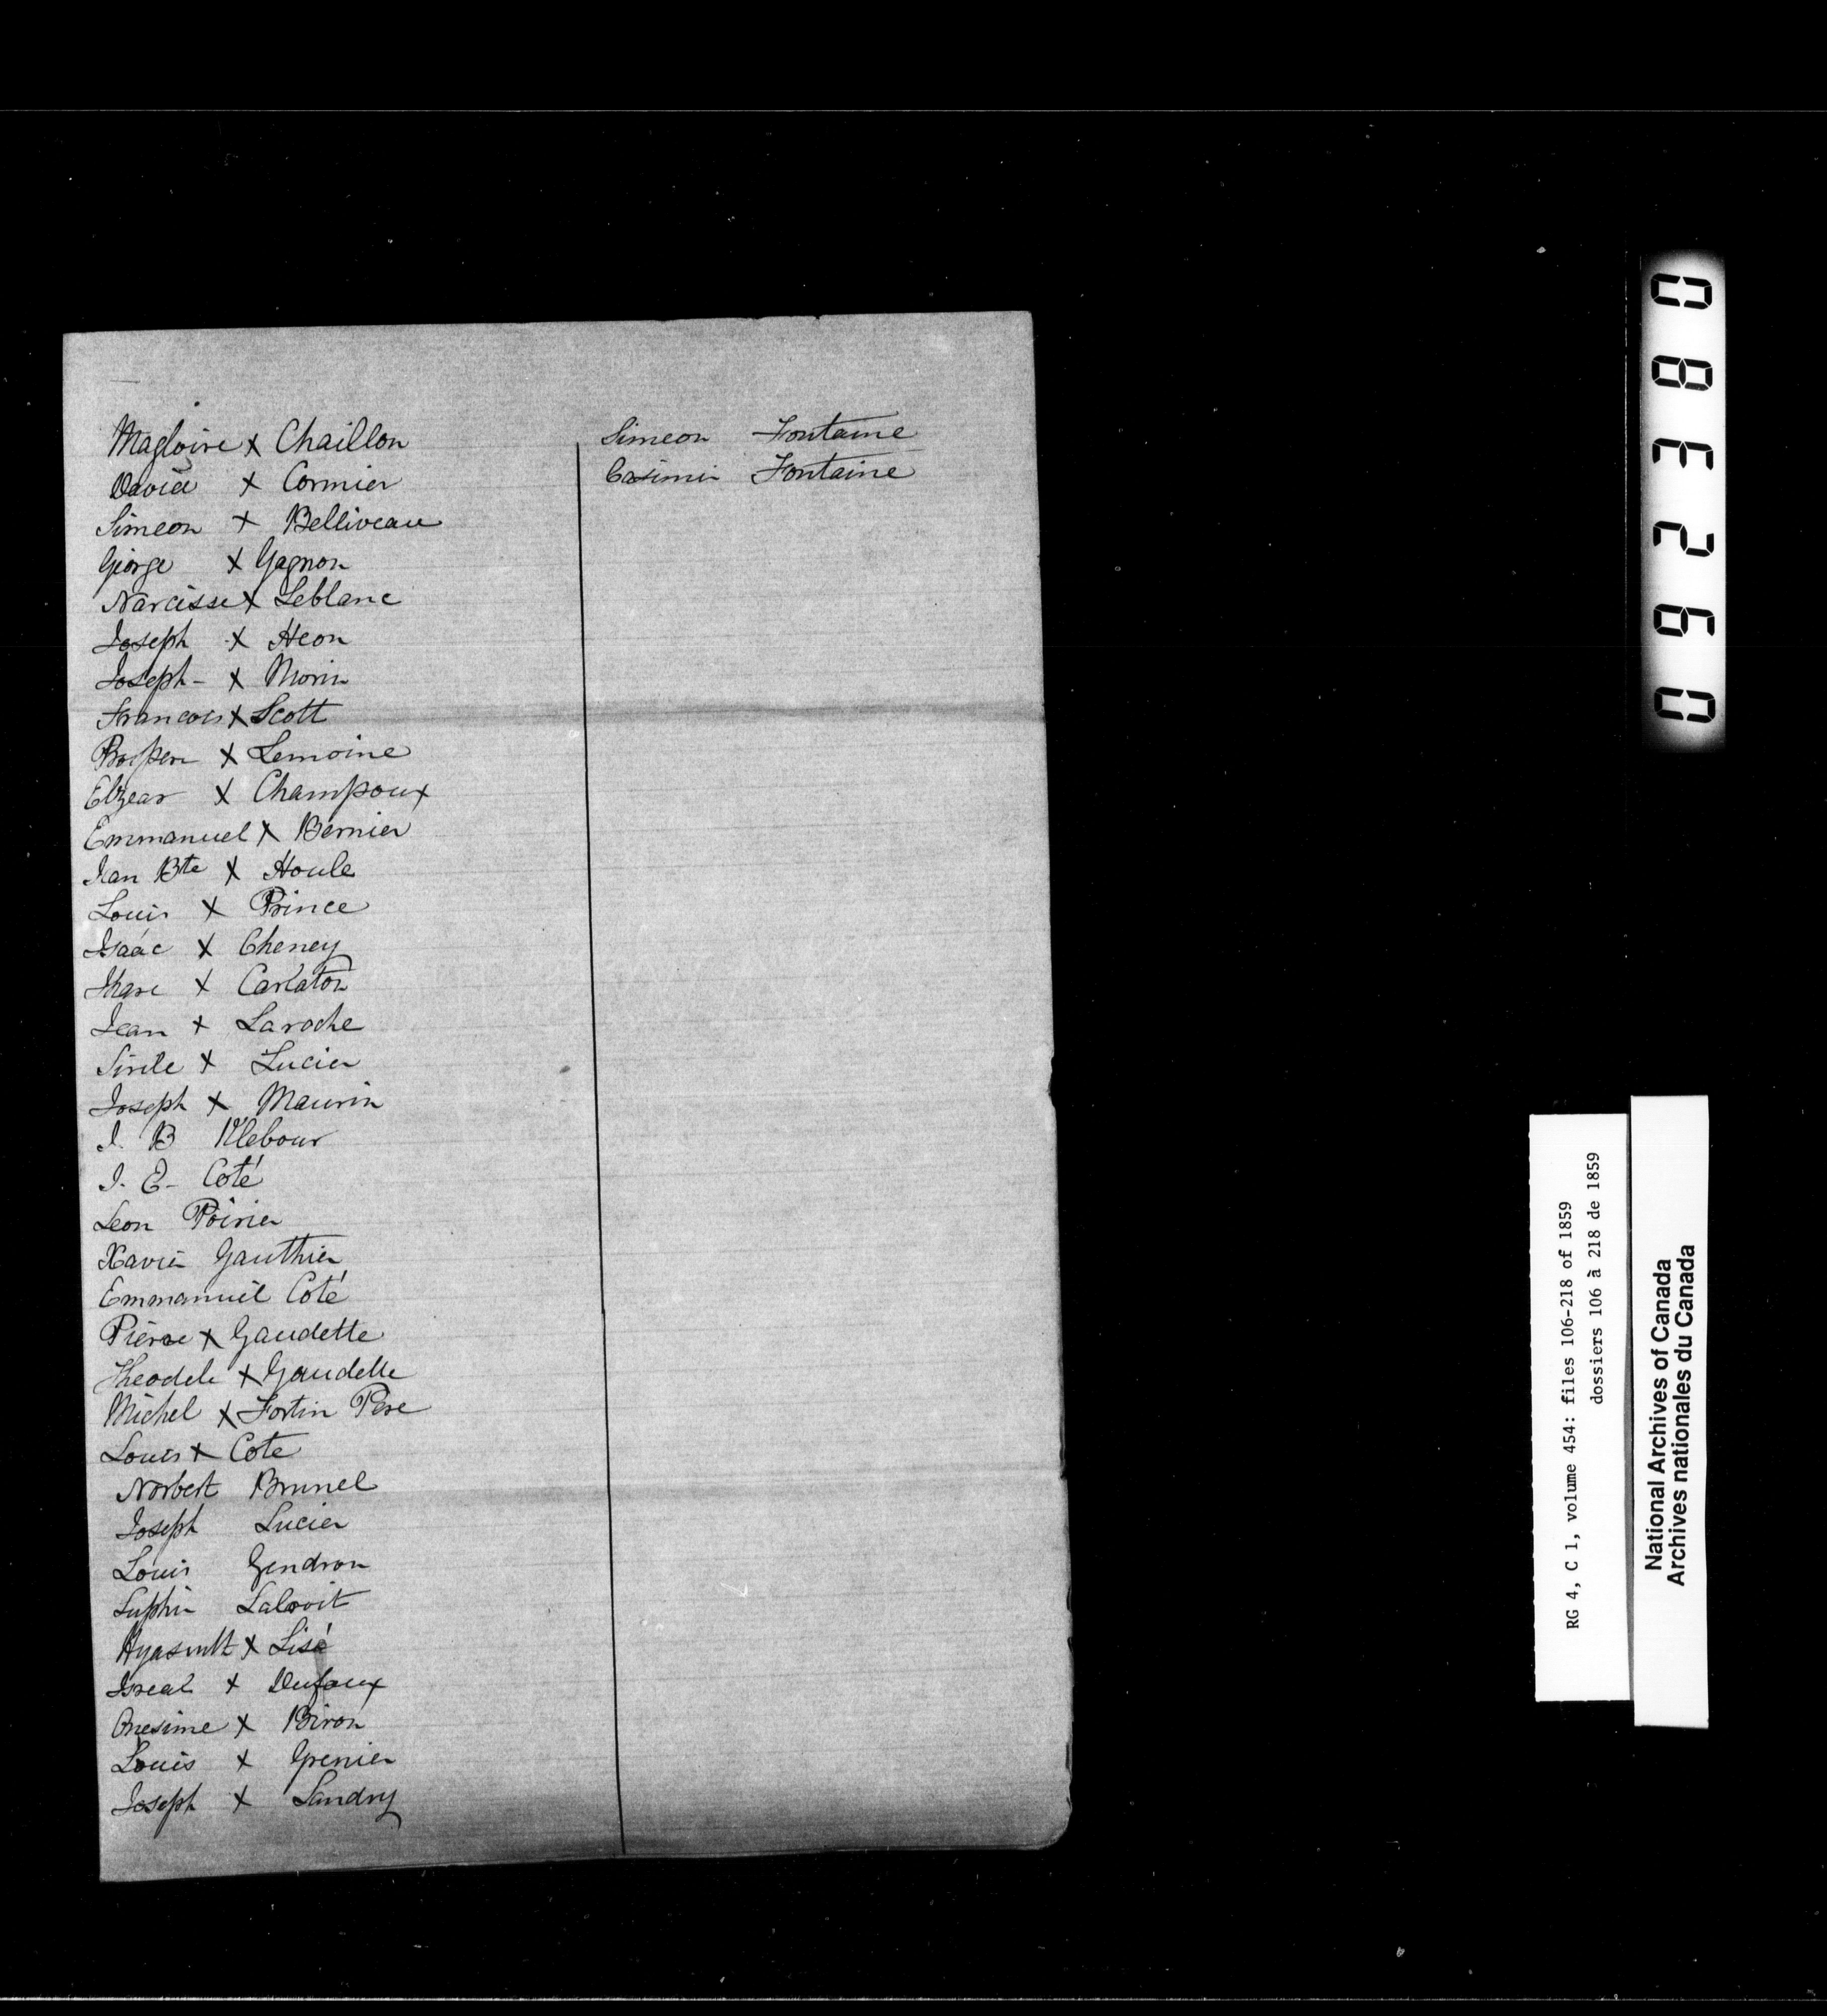 Magloire x Chaillon
David x Cormier
Simeon x Belliveau
George x Gagnon
Narcisse x Leblanc
Joseph x Heon
Joseph - x Morin
Francois x Scott
Prosper x Lemoine
Elzear x Champoux
Emmanuel x Bernier
Jean Bte x Houle
Louis x Prince
Isaác x Cheney
x Carlaton
Jean x Laroche
Sirile x Lucier
Joseph x Maurin
J. B Klebour
J. E- Coté
Leon Poirier
Xavier Gauthier
Emmanuel Coté
Pierre x Gaudette
Theodele x Gaudette
Michel x Fortin Pere
Louis x Cote
Norbert Brunel
Joseph Lucier
Louis Gendron
x Lisé
Isreal x Dufaux
Onesime x Biron
Louis x Grenier
Joseph x Landry
Simeon Fontaine
Casimir Fontaine
062380
RG 4, C 1, volume 454: files 106-218 of 1859
dossiers 106 à 218 de 1859
National Archives of Canada
Archives nationales du Canada